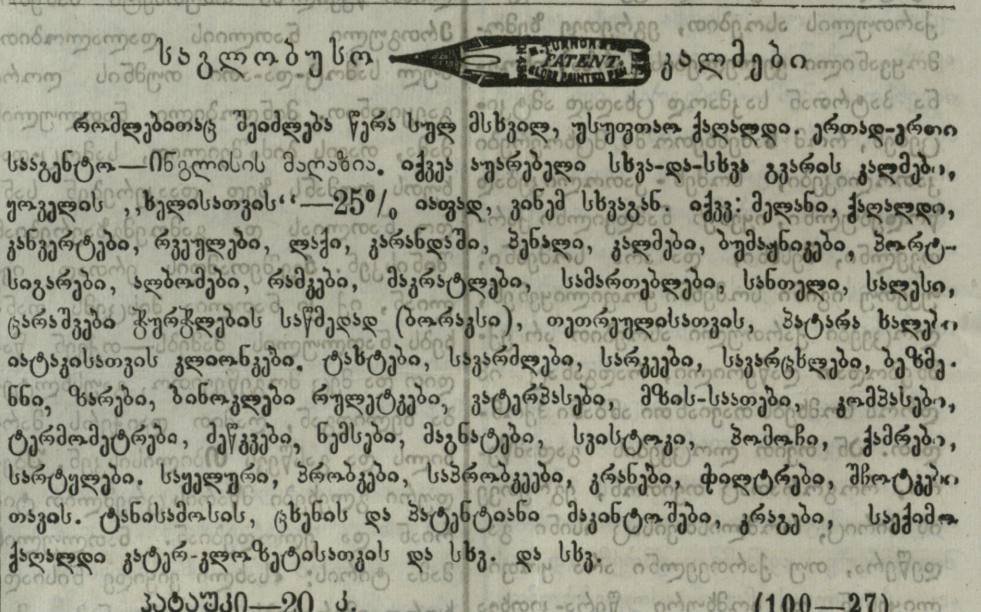 საგლობუსო PATENT. კალმები
რომლებითაც შეიძლება წერა სულ მსხვილ, უსუფთაო ქაღალდი. ერთად-ერთი
სააგენტო—ინგლისის მაღაზია. იქვე აუარებელი სხვა-და-სხვა გვარის კალმები,
ყოველის ,,ხელისათვის“—25% იაფად, ვინემ სხვაგან. იქვე: მელანი, ქაღალდი,
კანვერტები, რვეულები, ლაქი, კარანდაში, პენალი, კალმები, ბუმაჟნიკები, პორტ-
სიგარები, ალბომები, რამკები, მაკრატლები, სამართებლები, სანთელი, სალესი,
ცარაშკები ჭურჭლების საწმედად (ბორაკსი), თეთრეულისათვის, პატარა ხალები
იატაკისათვის კლიონკები. ტახტები, სავარძლები, სარკეები, სავარცხლები, ბეზმე-
ნნი, ზარები, ბინოკლები რულეტკები, ვატერპასები, მზის-საათები, კომპასები,
ტერმომეტრები, ძეწკვები, ნემსები, მაგნატები, სვისტოკი, პომოჩი, ქამრები,
სარტყლები. საყელური, პრობკები, საპრობკეები, კრანები, ფილტრები, შჩოტკები
თავის. ტანისამოსის, ცხენის და პატენტიანი მაკინტოშები, კრაგები, საექიმო
ქაღალდი კატერ-კლოზეტისათვის და სხვ. და სხვ.
პატაუკი—20 კ. (100—27)